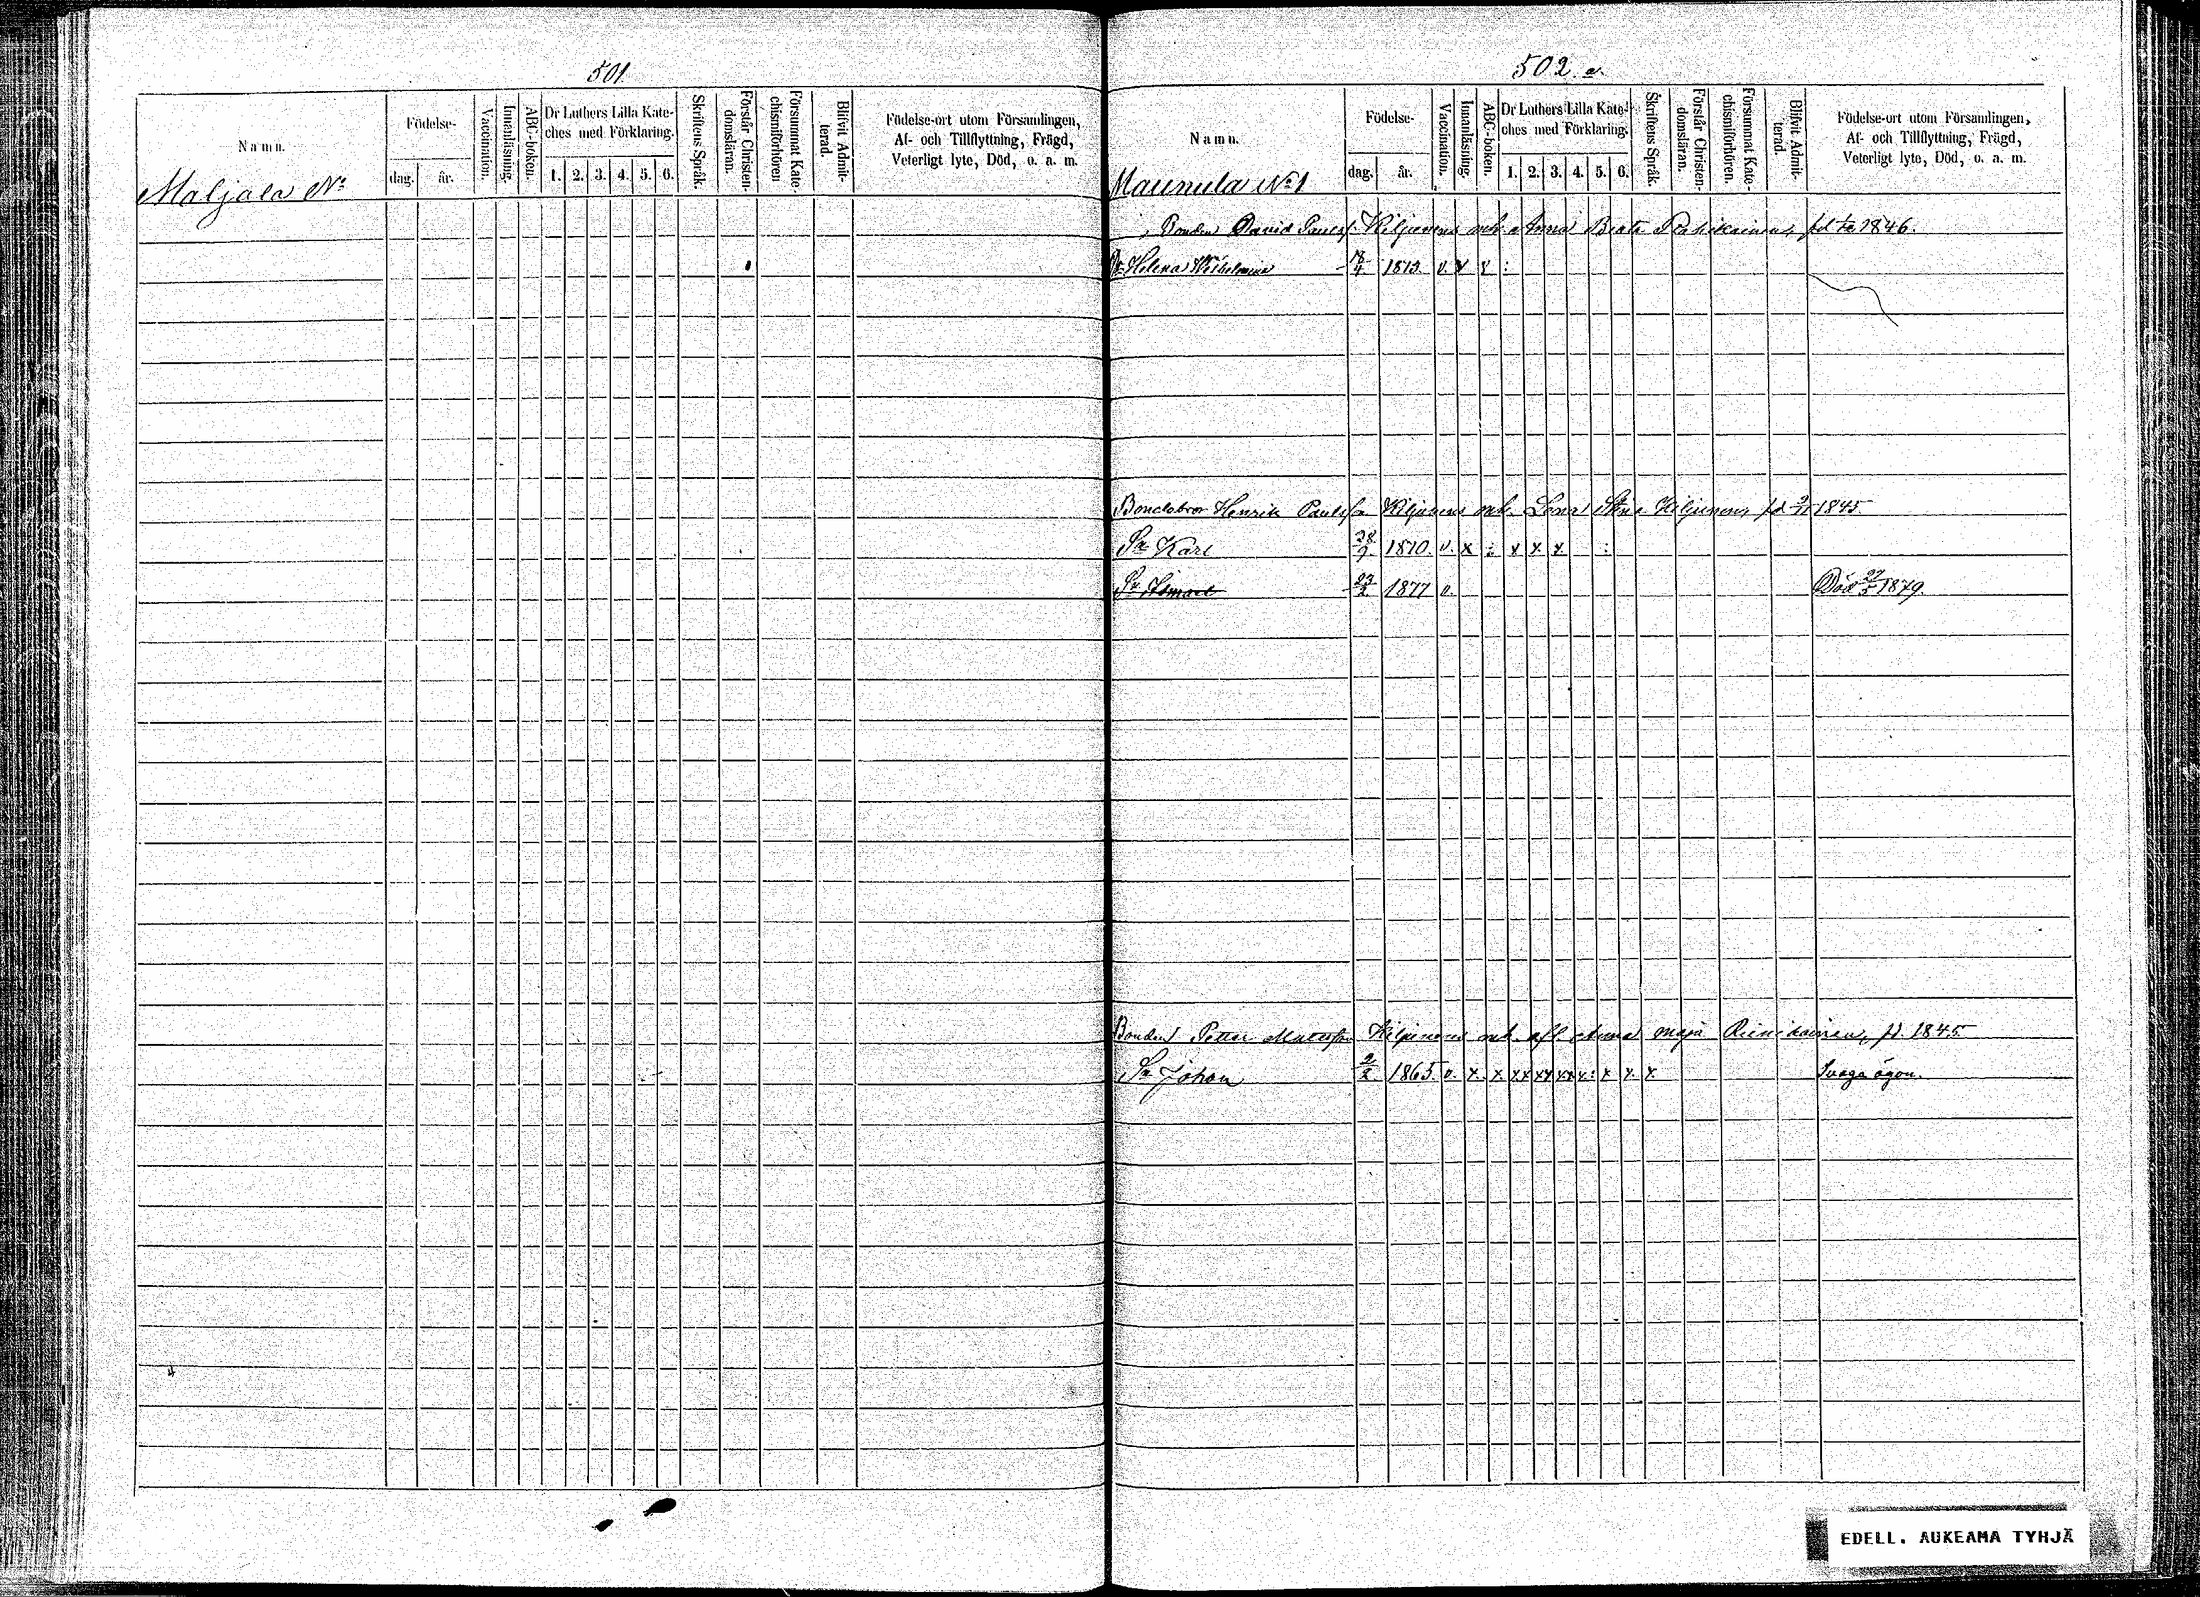 501
Namn.
Födelse-
dag.
år.
Vaccination.
Innanläsning.
ABC-boken.
Dr Luthers Lilla Kate-
ches med Förklaring.
1. 2. 3. 4. 5. 6.
Skriftens Språk.
Förstår Christen-
domsläran.
Försummat Kate-
chismiförhören
Blifvit Admit-
terad.
Födelse-ort utom Församlingen,
Af- och Tillflyttning, Frägd,
Veterligt lyte, Död, o. a. m.
Maljala No
502 a.
Namn.
Födelse-
dag.
år.
Vaccination.
Innanläsning.
ABC-boken.
Dr Luthers Lilla Kate-
ches med Förklaring.
1. 2. 3. 4. 5. 6.
Skriftens Språk.
Förstår Christen-
domsläran.
Försummat Kate-
chismiförhören.
Blifvit Admit-
terad.
Födelse-ort utom Församlingen,
Af- och Tillflyttning, Frägd,
Veterligt lyte, Död, o. a. m.
Maunula No 1
Bonden David Paulss. Kiljunens mh. Anna Beata fd 1846.
Helena Wilhelmina 18/4 1873. v. x x :
Bondebror Henrik Paulsson Kiljunens mh. Lena Stina Kiljunen, fd 1845
Sn Karl 28/9 1870. v. x : x x x :
Sn 23/2 1877 v. Död 1879.
Bonden Petter Mattsson Kiljunens mh. afl. Anna Maja fd. 1845
Sn Johan 2/2 1865. v. x. x xx xx xx x: x x. x. Svaga ögon.
EDELL. AUKEAMA TYHJÄ